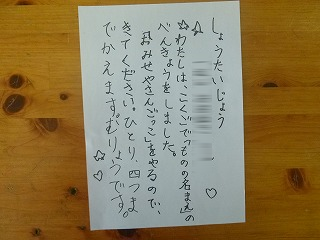 しょうたいじょう
☆わたしは、こくごで「ものの名まえ」の
べんきょうをしました。
「おみせやさんごっこ」をやるので、
きてください。ひとり、四つま
でかえます。むりょうです。